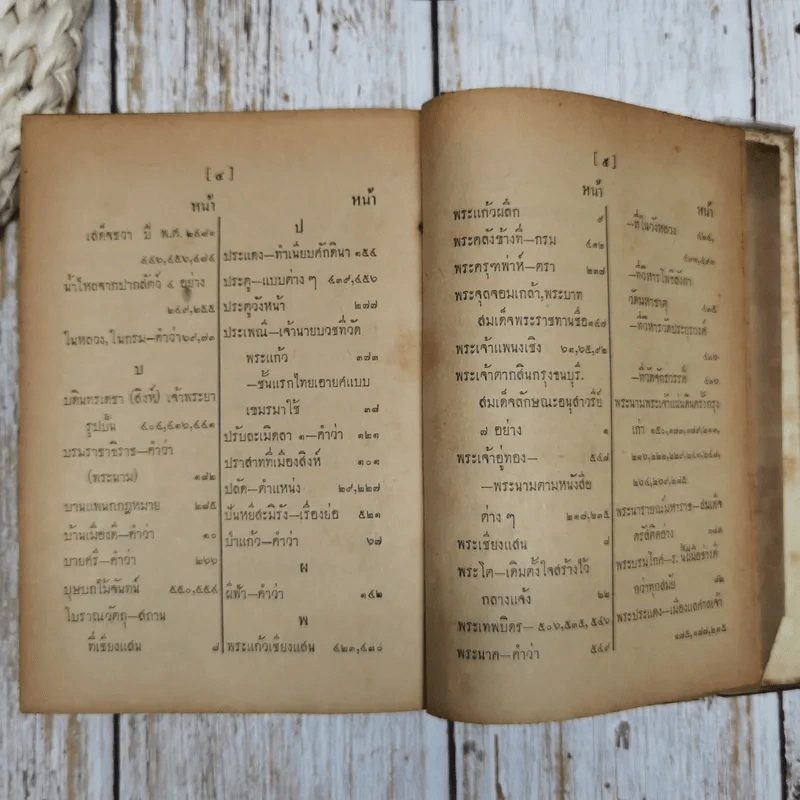 [ ๔ ]
หน้า
เสด็จชวา ปี พ.ศ.
น้ำไหลจากปากสัตว์ ๔ อย่าง
๒๔๙,๒๕๕
ในหลวง,ในกรม—คำว่า ๖๙,๗๓
บ
บดินทรเดชา (สิงห์) เจ้าพระยา
รูปปั้น
บรมราชาธิราช—คำว่า
(พระนาม) ๑๘๒
บานแผนกกฎหมาย ๒๘๕
บ้านเมืองดี—คำว่า ๑๐
บายศรี—คำว่า ๒๖๖
บุษบกไม้จันทน์ ๕๕๐,๕๕๔
โบราณวัตถุ—สถาน
ที่เชียงแสน ๘
หน้า
ป
ประแดง—ทำเนียบศักดินา ๑๕๔
ประตู—แบบต่าง ๆ ๔๓๙,๔๕๖
ประตูวังหน้า ๒๗๗
ประเพณี—เจ้านายบวชที่วัด
พระแก้ว ๓๗๓
—ชั้นแรกไทยเอาอย่างแบบ
เขมรมาใช้ ๓๘
ปรับละเมิดลา ๑—คำว่า ๑๒๑
ปราสาทที่เมืองสิงห์ ๑๐๑
ปลัด—ตำแหน่ง ๒๙,๒๒๗
ปันหยีสะมิรัง—เรื่องย่อ ๕๒๑
ป่าแก้ว—คำว่า ๖๗
ผ
ผีฟ้า—คำว่า ๑๔๒
พ
พระแก้วเชียงแสน ๔๒๓,๔๓๐
[ ๕ ]
หน้า
พระแก้วผลึก ๙
พระคลังข้างที่—กรม ๔๑๒
พระครุฑพ่าห์—ตรา ๒๓๗
พระจุลจอมเกล้า,พระบาท
สมเด็จพระราชทานชื่อ ๑๔๗
พระเจ้าแพนงเชิง ๖๑,๖๕,๙๒
พระเจ้าตากสินกรุงธนบุรี
สมเด็จลักษณะอนุสาวรีย์
๗ อย่าง ๑
พระเจ้าอู่ทอง— ๕๔๗
—พระนามตามหนังสือ
ต่าง ๆ ๒๑๗,๒๓๕
พระเชียงแสน ๘
พระโต—เดิมตั้งใจสร้างไว้
กลางแจ้ง ๒๒
พระเทพบิดร— ๕๐๖,๕๓๕,๕๔๖
พระนาค—คำว่า ๕๔๙
หน้า
—ที่ในวังหลวง
—ที่วิหารโพธิลังกา
วัดมหาธาตุ ๔๓๕
—ที่วิหารวัดประยุรวงศ์
—ที่วัดจักรวรรดิ์
พระนามพระเจ้าแผ่นดินครั้งกรุง
เก่า
๒๖๔,๒๖๙,๒๘๕
พระนารายณ์มหาราช—สมเด็จ
ตรัสติดอ่าง
พระบรมโกศ—
กว่าทุกสมัย ๘๒
พระประแดง—
๑๗๕,๑๗๗,๒๑๕